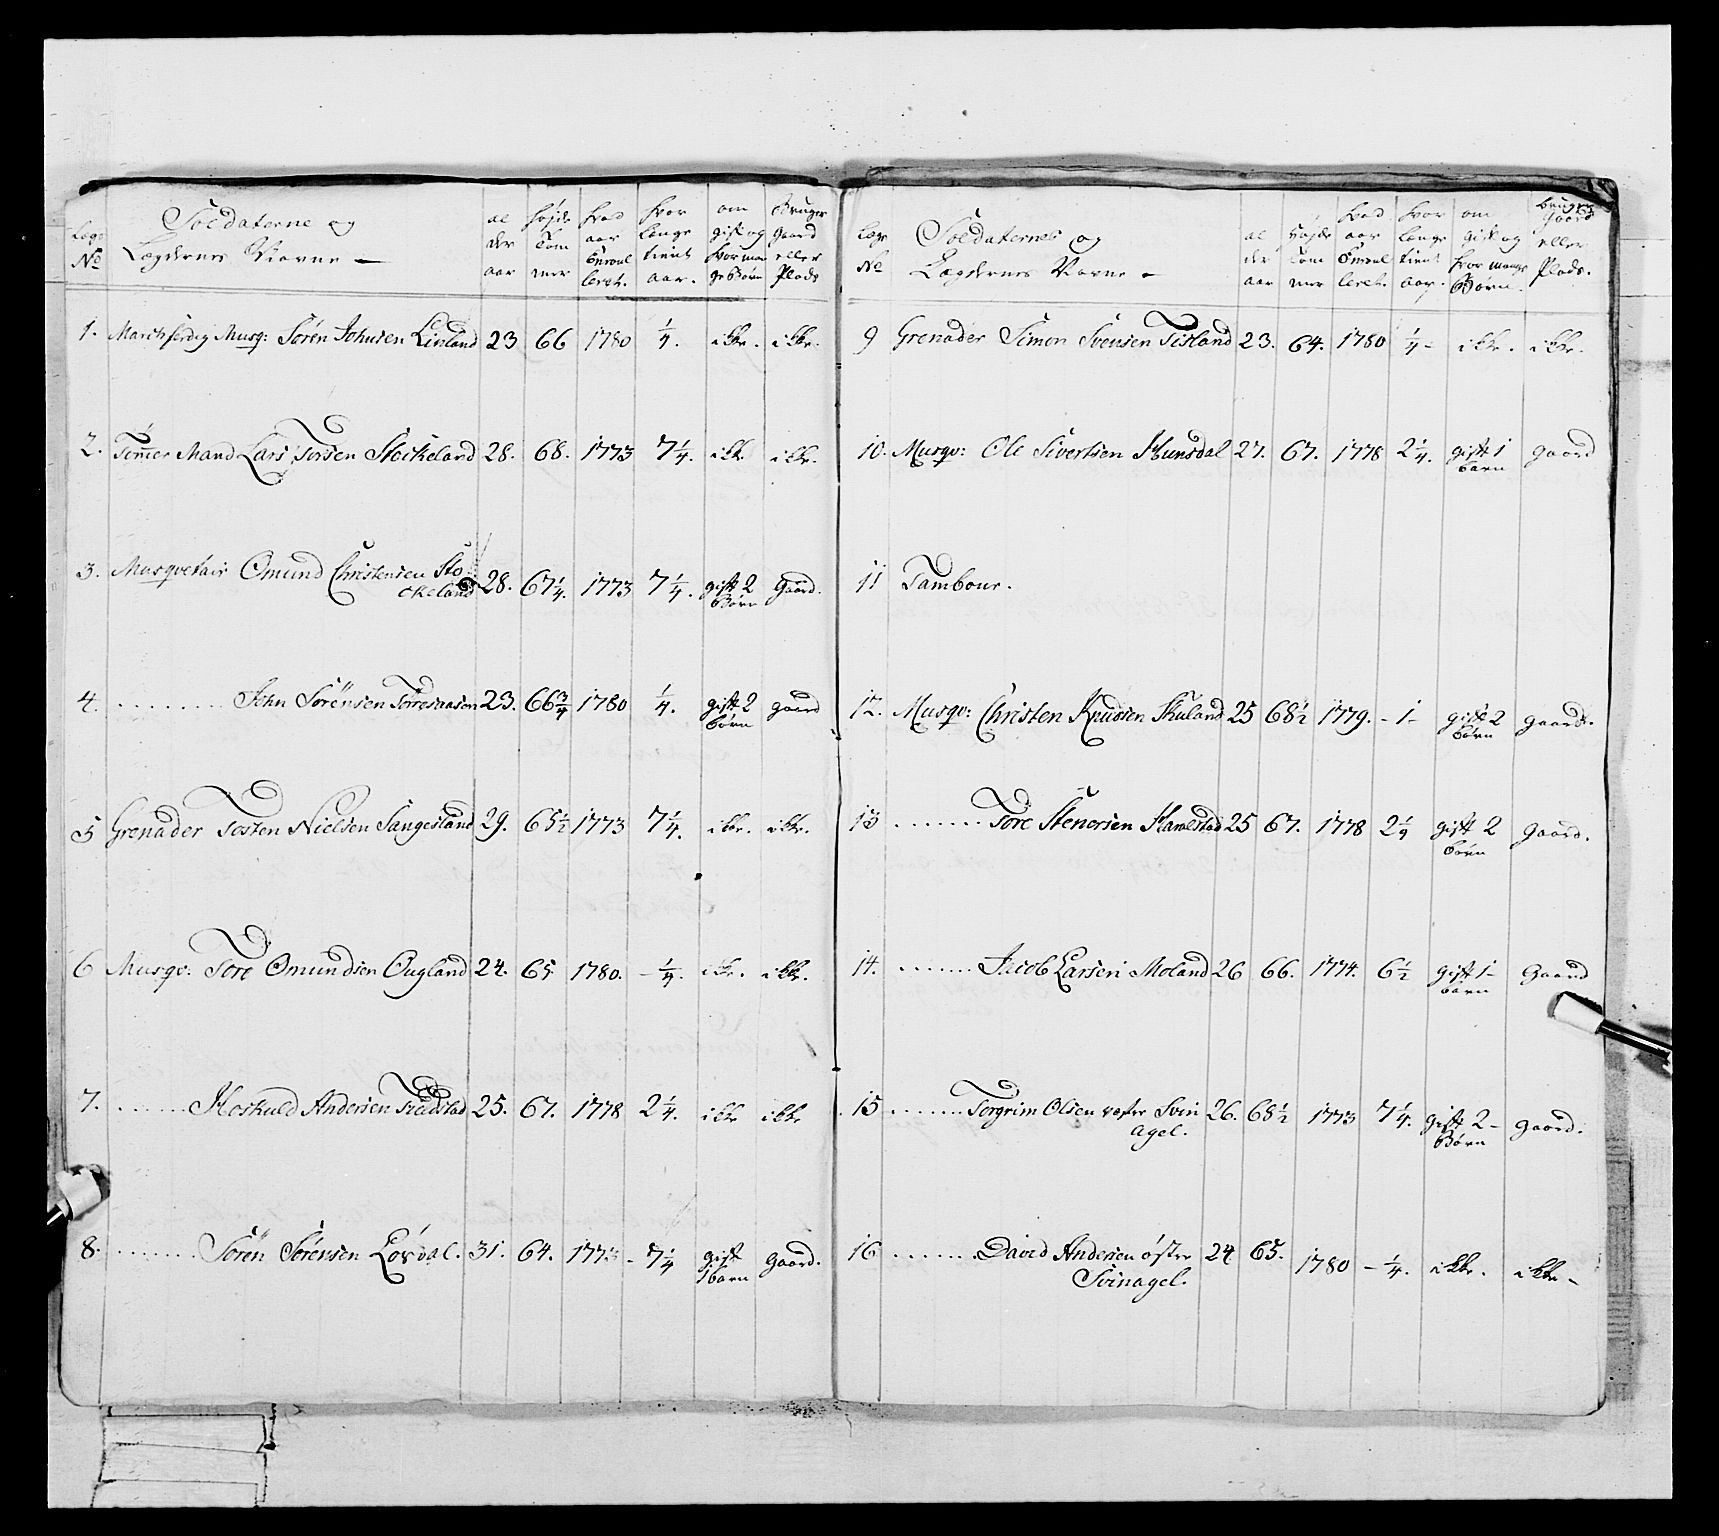 Lægs No
Soldaterne og Lægdernes Navne —
al der aar
Højde Tom mer
hvad aar Enroul leret.
hvor længe tient aar.
om gift og hvor man ge Børn
Bruger Gaard eller Plads
1. Marchferdig Musq: Sørén Johnsen Linland 23 66 1780 1/4. ikke. ikke.
2. Tømer Mand Lars Torsen Stockeland 28. 68. 1773 7 1/4. ikke ikke.
3. Musquetair Omund Christensen Sto
ckeland 28. 67 1/4. 1773 7 1/4. gift 2 Gaard.
Børn
4. ........ John Sørensen Torresaasen 23. 66 3/4 1780 1/4. gift 2 gaard
børn
5 Grenader Tosten Nielsen Sangesland 29. 65 1/2 1773 7 1/4. ikke. ikke.
6 Musqv: Tore Omundsen Ougland 24. 65 1780. - 1/4. ikke. ikke.
7. ....... Hoskuld Andersen 25. 67. 1778 2 1/4. ikke ikke
8. ........ Sørén Sørensen Løvdal. 31. 64. 1773 - 7 1/4 gift Gaard.
1 barn
lægs No
Soldaternes og Lægdernes Navne -
al der aar
Højde Tom mer
hvad aar Enroul leret.
hvor længe tient aar.
om gift og hvor mange Børn.
bruger Gaard eller Plads.
9 Grenader Simon Svensen Tisland 23. 64. 1780 1/4 - ikke. ikke.
10. Musqv: Ole Sivertsen Hunsdal 27. 67. 1778 2 1/4. gift 1 Gaard
barn
11 Tambour.
12. Musqv: Christen Knudsen Skuland 25 68 1/2 1779. - 1 - gift 2 gaard.
børn
13 ........ Tore Stenersen 25 67. 1778 2 1/4 gift 2 Gaard.
børn
14. ........ Jacob Larsen Moland 26 66. 1774. 6 1/2 gift 1 - Gaard
barn
15 ........ Torgrim Olsen vester Svin
agel. 26. 68 1/2 1773 7 1/4. gift 2 - Gaard.
Børn
16 ........ David Andersen øster 24 65. 1780 - 1/4. ikke. ikke -
Svinagel.